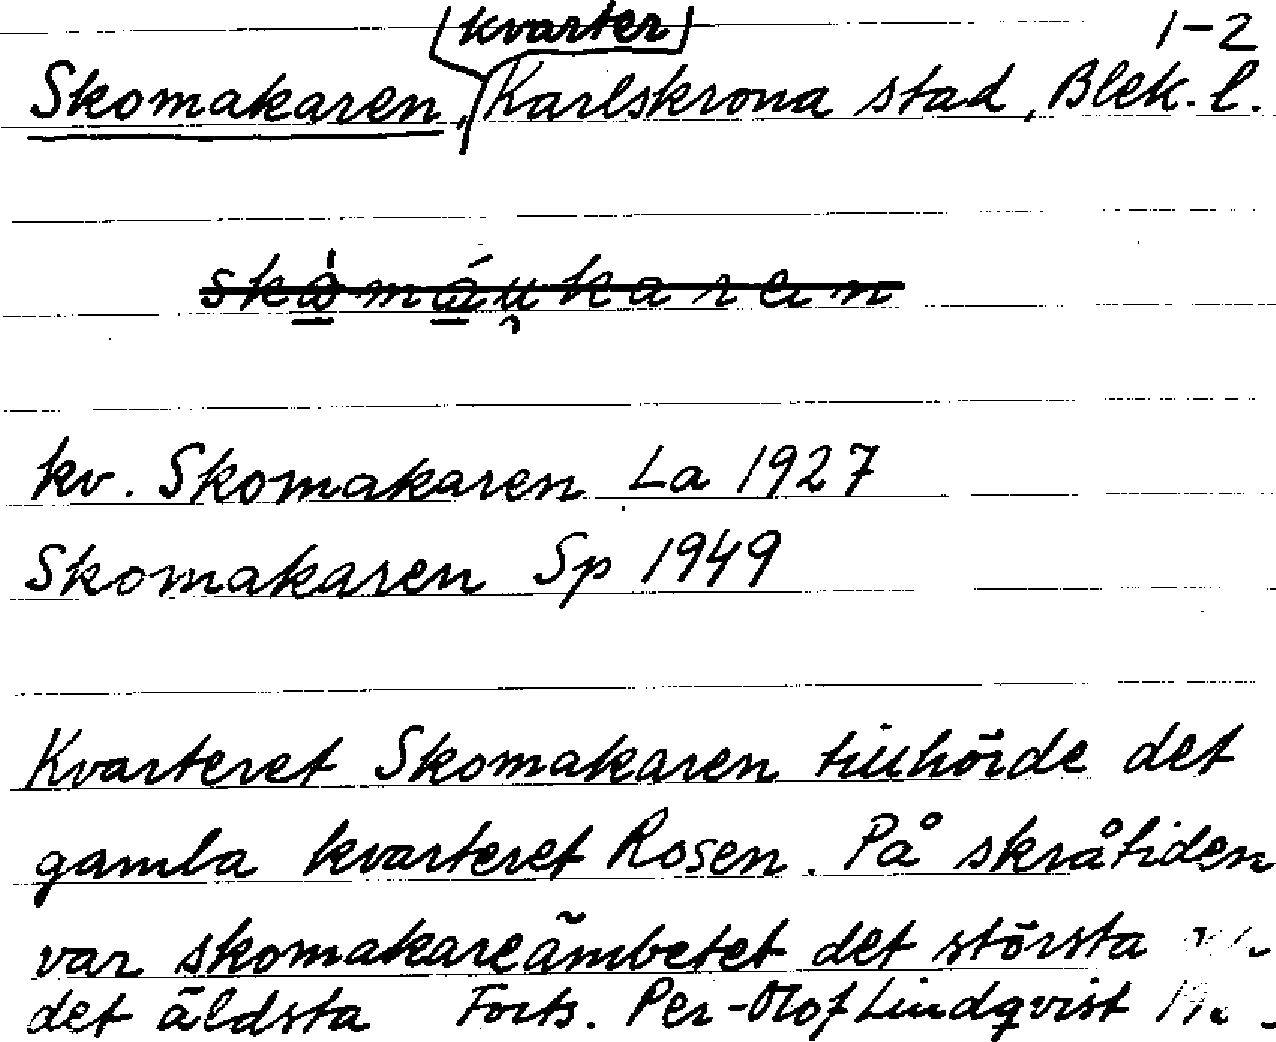 kvarter 1-2
Skomakaren, Karlskrona stad, Blek. l.
kv. Skomakaren La 1927
Skomakaren Sp 1949
Kvarteret Skomakaren tillhörde det
gamla kvarteret Rosen. På skråtiden
var skomakareämbetet det största
det äldsta Forts. Per-Olof Lindqvist